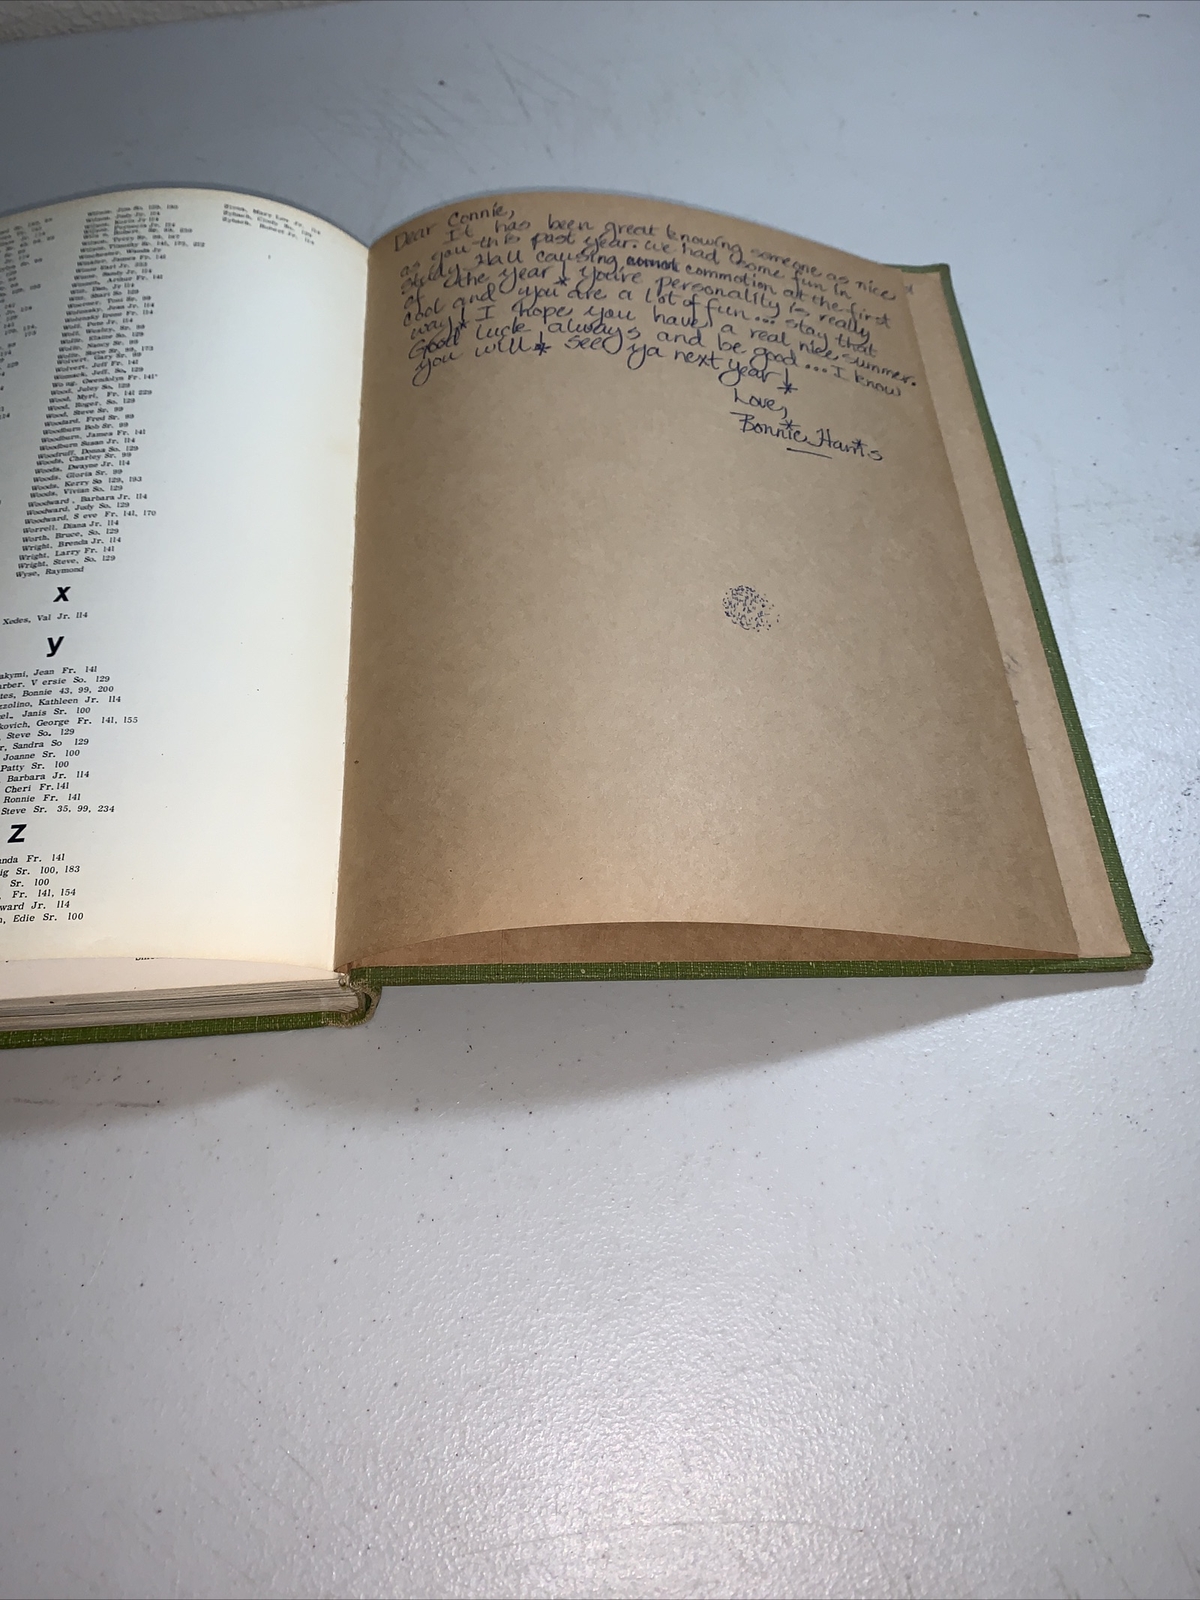 Wilson, Jim So. 129, 180
Wilson, Judy Jr. 114
Wilson, Patricia Jr. 114
Wilson, Terry Sr. 99, 187
Winchester, Wanda Jr
Winkler, James Fr. 141
Winn Earl Jr. 233
Winn, Sandy Jr. 114
Winne, Arthur Fr. 141
Witt, Dan, Jr 114
Witt, Shari So 129
Woerner, Toni Sr. 99
Wolensky, Jean Jr. 114
Wolensky Irene Fr. 141
Wolf, Pam Jr. 114
Wolf, Wesley, Sr. 99
Wolfe, Elaine So. 129
Wolfe, Nancy Sr. 99
Wolfe, Steve Sr. 99, 173
Wolvert, Gary Sr. 99
Wolvert, Jeff Fr. 141
Womack, Jeff, So, 129
Wo ng, Gwendolyn Fr. 141
Wood, Juley So, 129
Wood, Myrl, Fr. 141 229
Wood, Roger, So. 129
Wood, Steve Sr. 99
Woodard, Fred Sr. 99
Woodburn Bob Sr. 99
Woodburn, James Fr. 141
Woodburn Susan Jr. 114
Woodruff, Donna So. 129
Woods, Charley Sr. 99
Woods, Dwayne Jr. 114
Woods, Gloria Sr. 99
Woods, Kerry So 129, 193
Woods, Vivian So. 129
Woodward, Barbara Jr. 114
Woodward, Judy So. 129
Woodward, S eve Fr. 141, 170
Worrell, Diana Jr. 114
Worth, Bruce, So. 129
Wright, Brenda Jr. 114
Wright, Larry Fr. 141
Wright, Steve, So. 129
Wyse, Raymond
x
Xedes, Val Jr. 114
y
akymi, Jean Fr. 141
arber. V ersie So. 129
tes, Bonnie 43, 99, 200
zzolino, Kathleen Jr. 114
el., Janis Sr. 100
kovich, George Fr. 141, 155
Steve So. 129
r, Sandra So 129
Joanne Sr. 100
Patty Sr. 100
Barbara Jr. 114
Cheri Fr. 141
Ronnie Fr. 141
Steve Sr. 35, 99, 234
z
anda Fr. 141
ig Sr. 100, 183
Sr. 100
Fr. 141, 154
ward Jr. 114
n, Edie Sr. 100
Mary Lou Jr. 114
Zyback, Cindy So. 129
Zyback, Robert Jr. 114
Dear Connie,
It has been great knowing someone as nice
as you this past year. we had some fun in
study Hall causing commotion at the first
of the year! you're personality is really
cool and you are a lot of fun... stay that
way! I hope you have a real nice summer.
Good luck always and be good... I know
you will! see ya next year!
Love,
Bonnie Harris